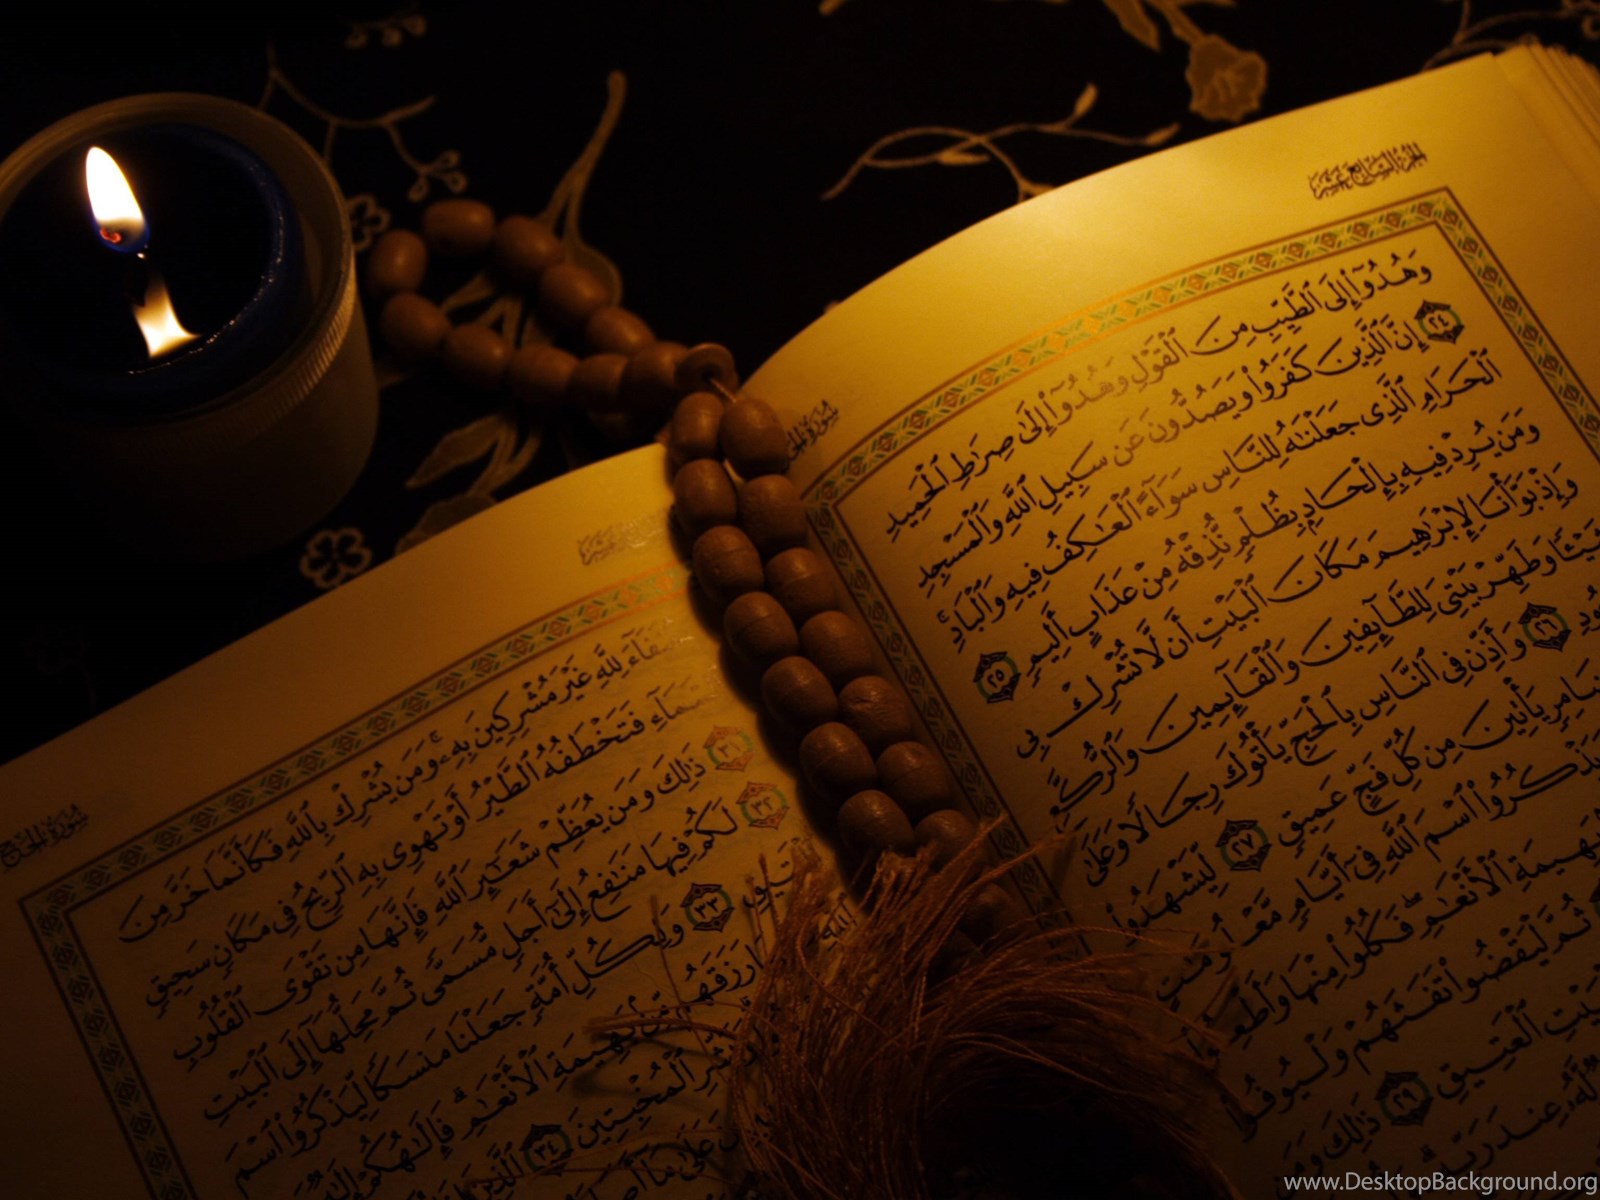 الجزء السابع عشر
وَهُدُوٓا۟ إِلَى ٱلطَّيِّبِ مِنَ ٱلْقَوْلِ وَهُدُوٓا۟ إِلَىٰ صِرَٰطِ ٱلْحَمِيدِ
٢٤ إِنَّ ٱلَّذِينَ كَفَرُوا۟ وَيَصُدُّونَ عَن سَبِيلِ ٱللَّهِ وَٱلْمَسْجِدِ
ٱلْحَرَامِ ٱلَّذِى جَعَلْنَٰهُ لِلنَّاسِ سَوَآءً ٱلْعَٰكِفُ فِيهِ وَٱلْبَادِ ۚ
وَمَن يُرِدْ فِيهِ بِإِلْحَادٍۭ بِظُلْمٍ نُّذِقْهُ مِنْ عَذَابٍ أَلِيمٍ ٢٥
وَإِذْ بَوَّأْنَا لِإِبْرَٰهِيمَ مَكَانَ ٱلْبَيْتِ أَن لَّا تُشْرِكْ بِى
شَيْـًٔا وَطَهِّرْ بَيْتِىَ لِلطَّآئِفِينَ وَٱلْقَآئِمِينَ وَٱلرُّكَّعِ
٢٦ وَأَذِّن فِى ٱلنَّاسِ بِٱلْحَجِّ يَأْتُوكَ رِجَالًا وَعَلَىٰ
ضَامِرٍ يَأْتِينَ مِن كُلِّ فَجٍّ عَمِيقٍ ٢٧ لِّيَشْهَدُوا۟
يَذْكُرُوا۟ ٱسْمَ ٱللَّهِ فِىٓ أَيَّامٍ مَّعْلُومَٰتٍ
بَهِيمَةِ ٱلْأَنْعَٰمِ ۖ فَكُلُوا۟ مِنْهَا وَأَطْعِمُوا۟
ثُمَّ لْيَقْضُوا۟ تَفَثَهُمْ وَلْيُوفُوا۟
ٱلْعَتِيقِ ٢٩ ذَٰلِكَ وَمَن
لَّهُۥ عِندَ رَبِّهِۦ
سورة الحج
حُنَفَآءَ لِلَّهِ غَيْرَ مُشْرِكِينَ بِهِۦ ۚ وَمَن يُشْرِكْ بِٱللَّهِ فَكَأَنَّمَا خَرَّ مِنَ
ٱلسَّمَآءِ فَتَخْطَفُهُ ٱلطَّيْرُ أَوْ تَهْوِى بِهِ ٱلرِّيحُ فِى مَكَانٍ سَحِيقٍ
٣١ ذَٰلِكَ وَمَن يُعَظِّمْ شَعَٰٓئِرَ ٱللَّهِ فَإِنَّهَا مِن تَقْوَى ٱلْقُلُوبِ
٣٢ لَكُمْ فِيهَا مَنَٰفِعُ إِلَىٰٓ أَجَلٍ مُّسَمًّى ثُمَّ مَحِلُّهَآ إِلَى ٱلْبَيْتِ
٣٣ وَلِكُلِّ أُمَّةٍ جَعَلْنَا مَنسَكًا لِّيَذْكُرُوا۟ ٱسْمَ
رَزَقَهُم مِّنۢ بَهِيمَةِ ٱلْأَنْعَٰمِ ۗ فَإِلَٰهُكُمْ إِلَٰهٌ
بَشِّرِ ٱلْمُخْبِتِينَ ٣٤ ٱلَّذِينَ
عَلَىٰ مَآ
www.DesktopBackground.org